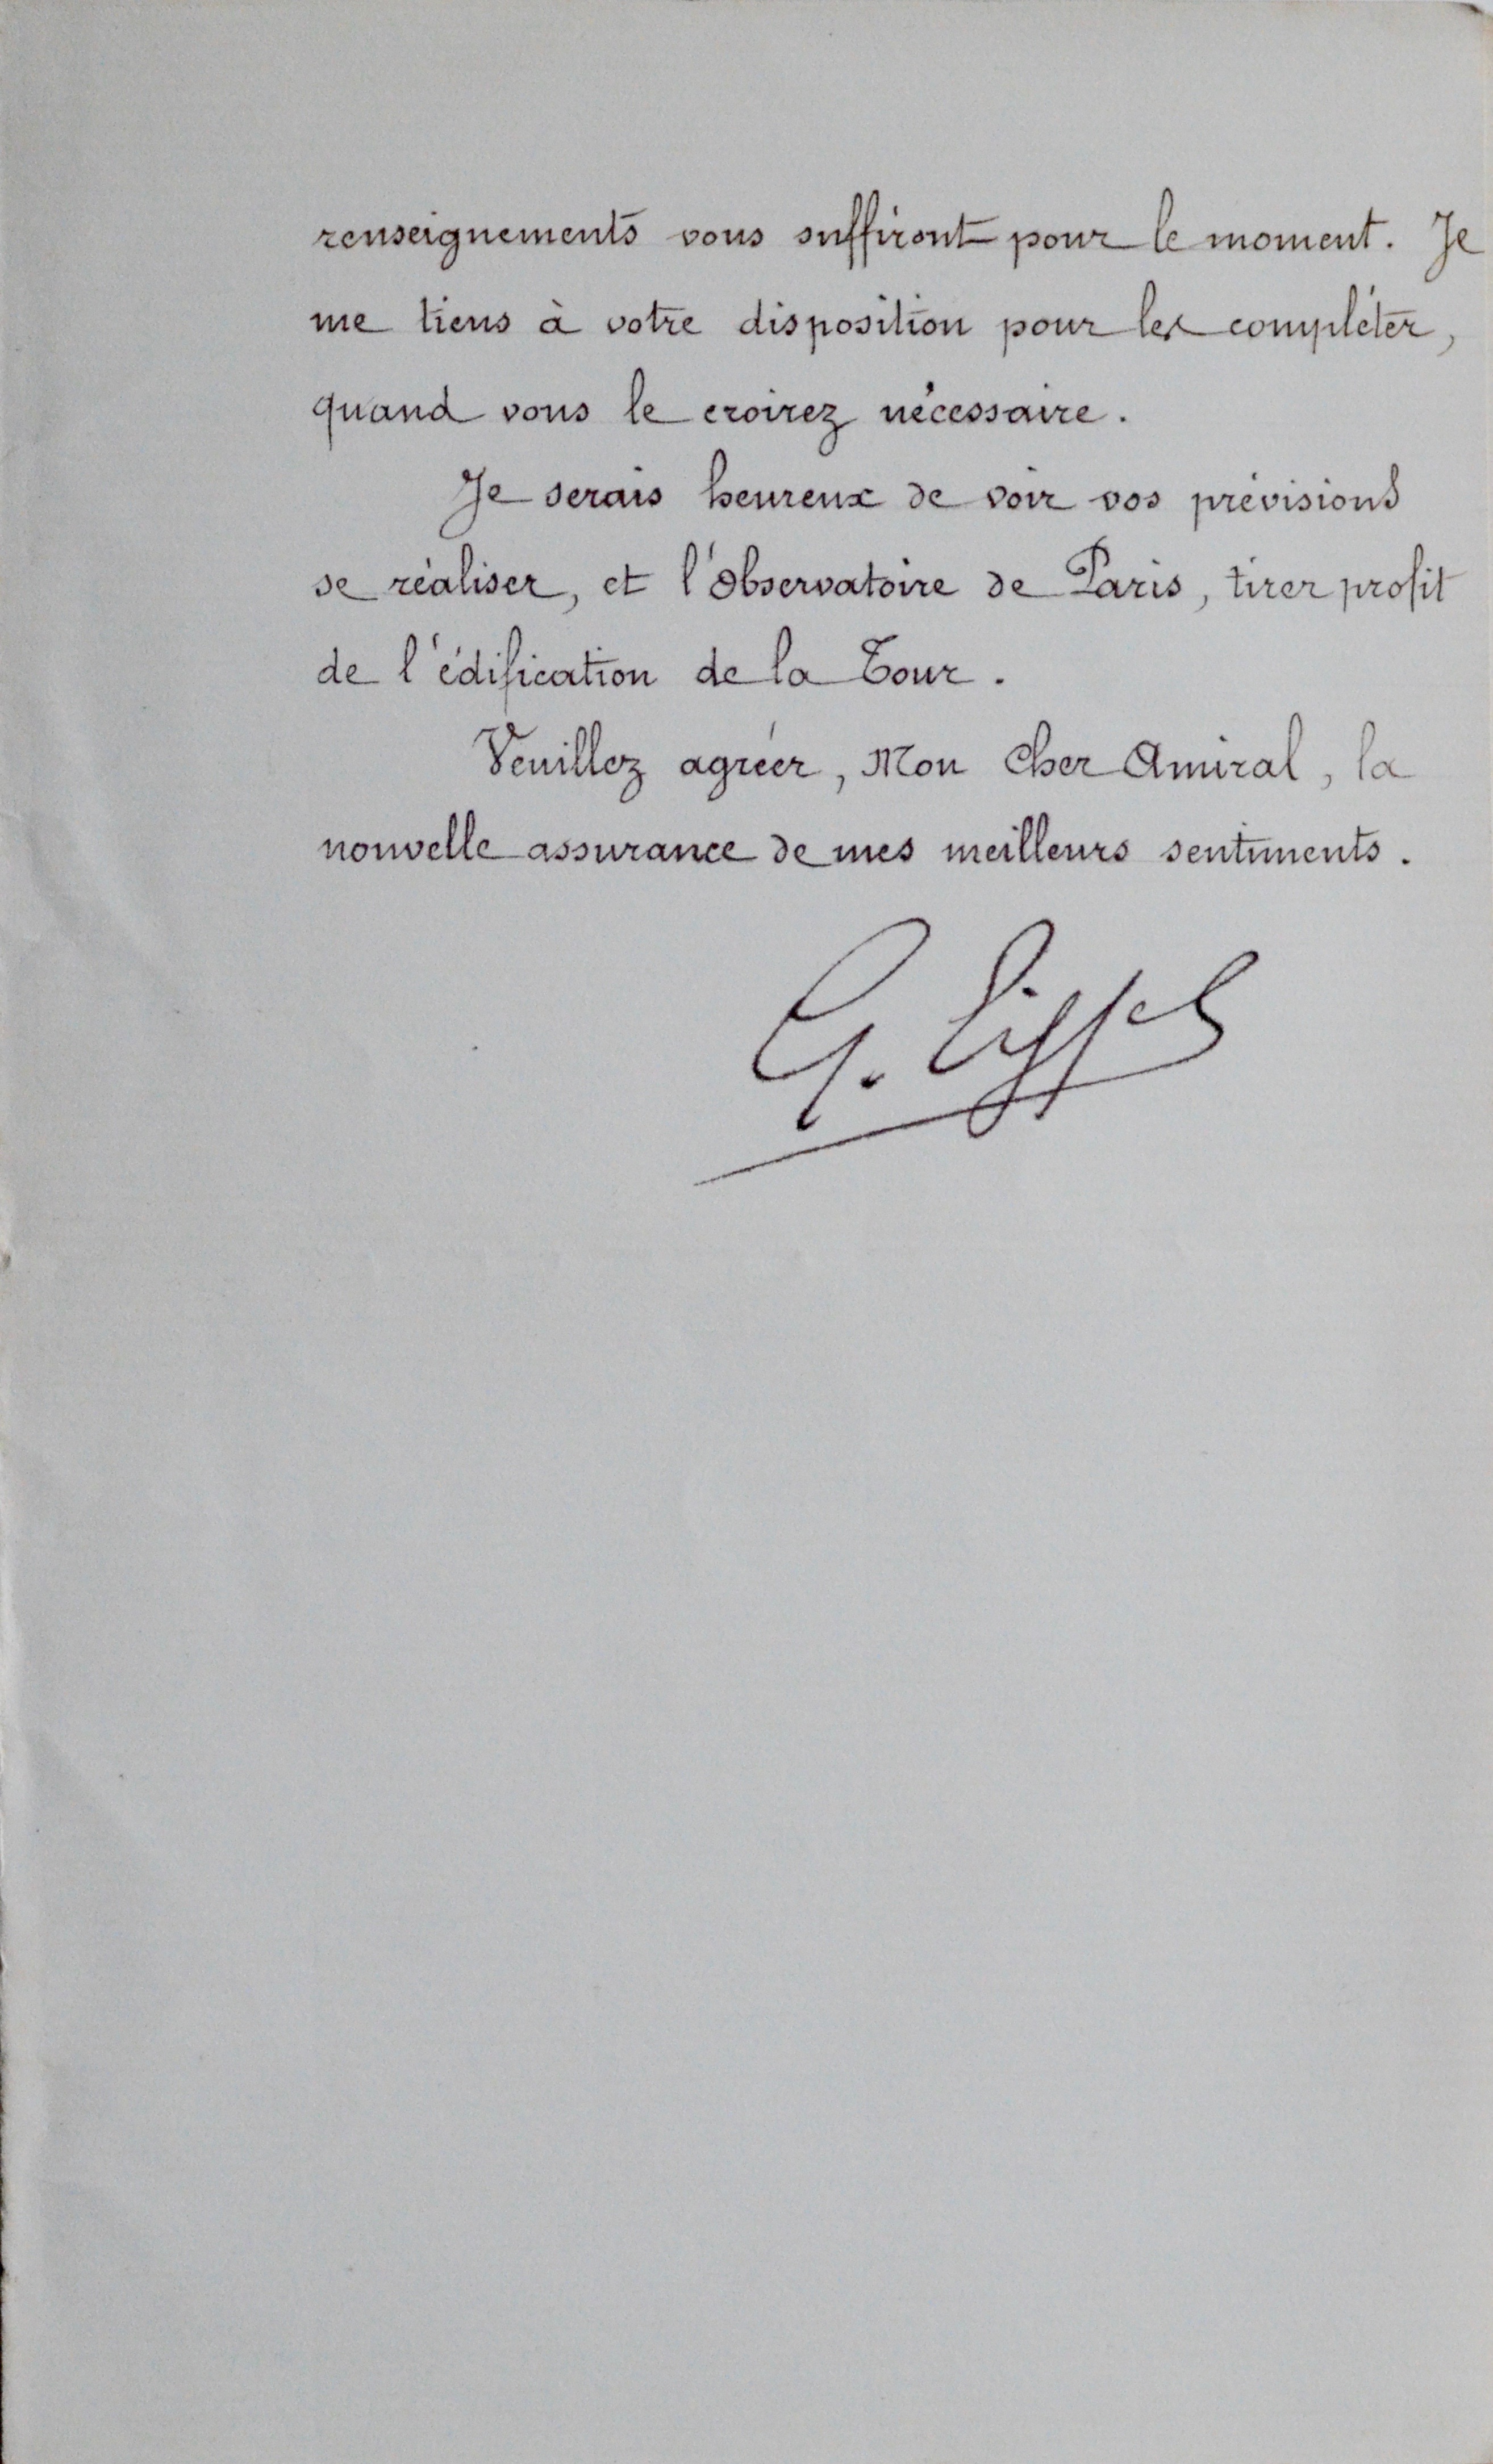 renseignements vous suffiront pour le moment. Je
me tiens à votre disposition pour les compléter,
quand vous le croirez nécessaire.
Je serais heureux de voir vos prévisions
se réaliser, et l'Observatoire de Paris, tirer profit
de l'édification de la Tour.
Veuillez agréer, Mon Cher Amiral, la
nouvelle assurance de mes meilleurs sentiments.
G. Eiffel